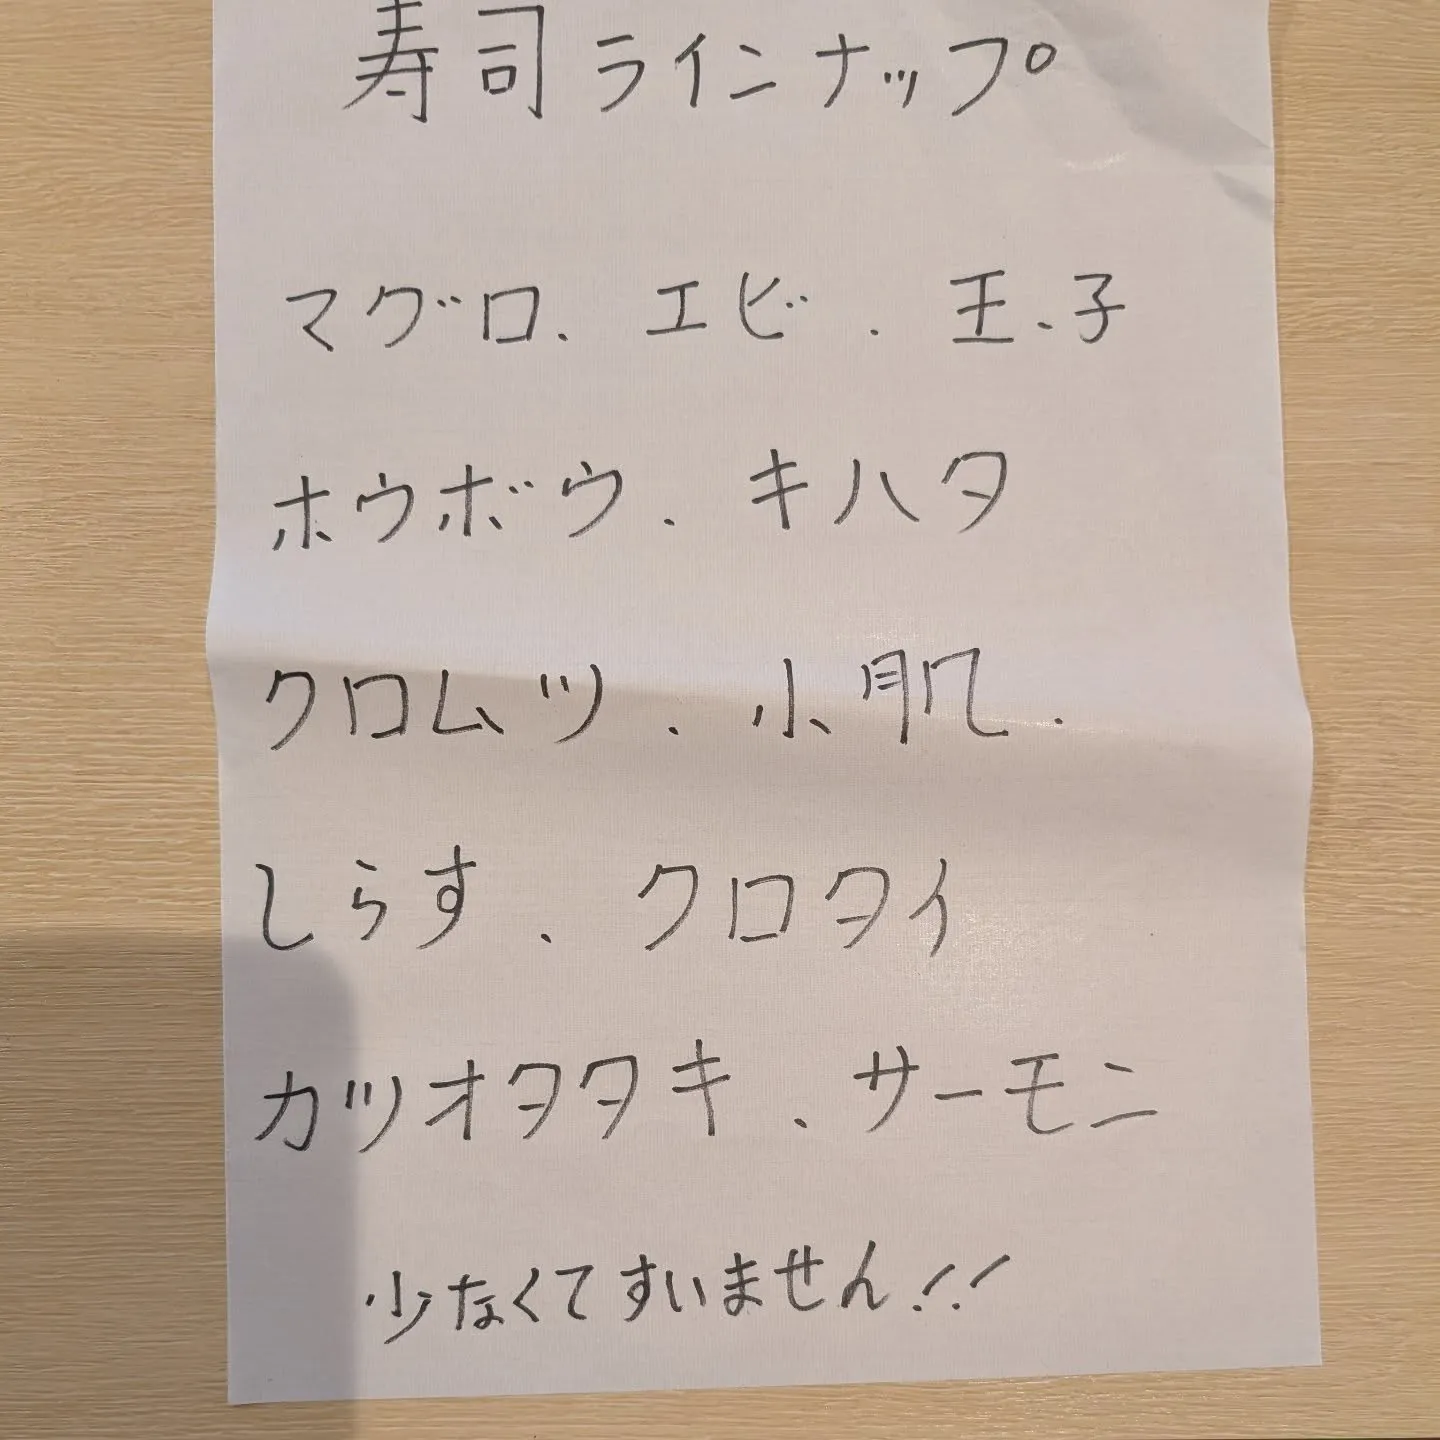 寿司ラインナップ
マグロ、エビ、玉子
ホウボウ、キハタ
クロムツ、小肌、
しらす、クロタイ
カツオタタキ、サーモン
少なくてすいません!!